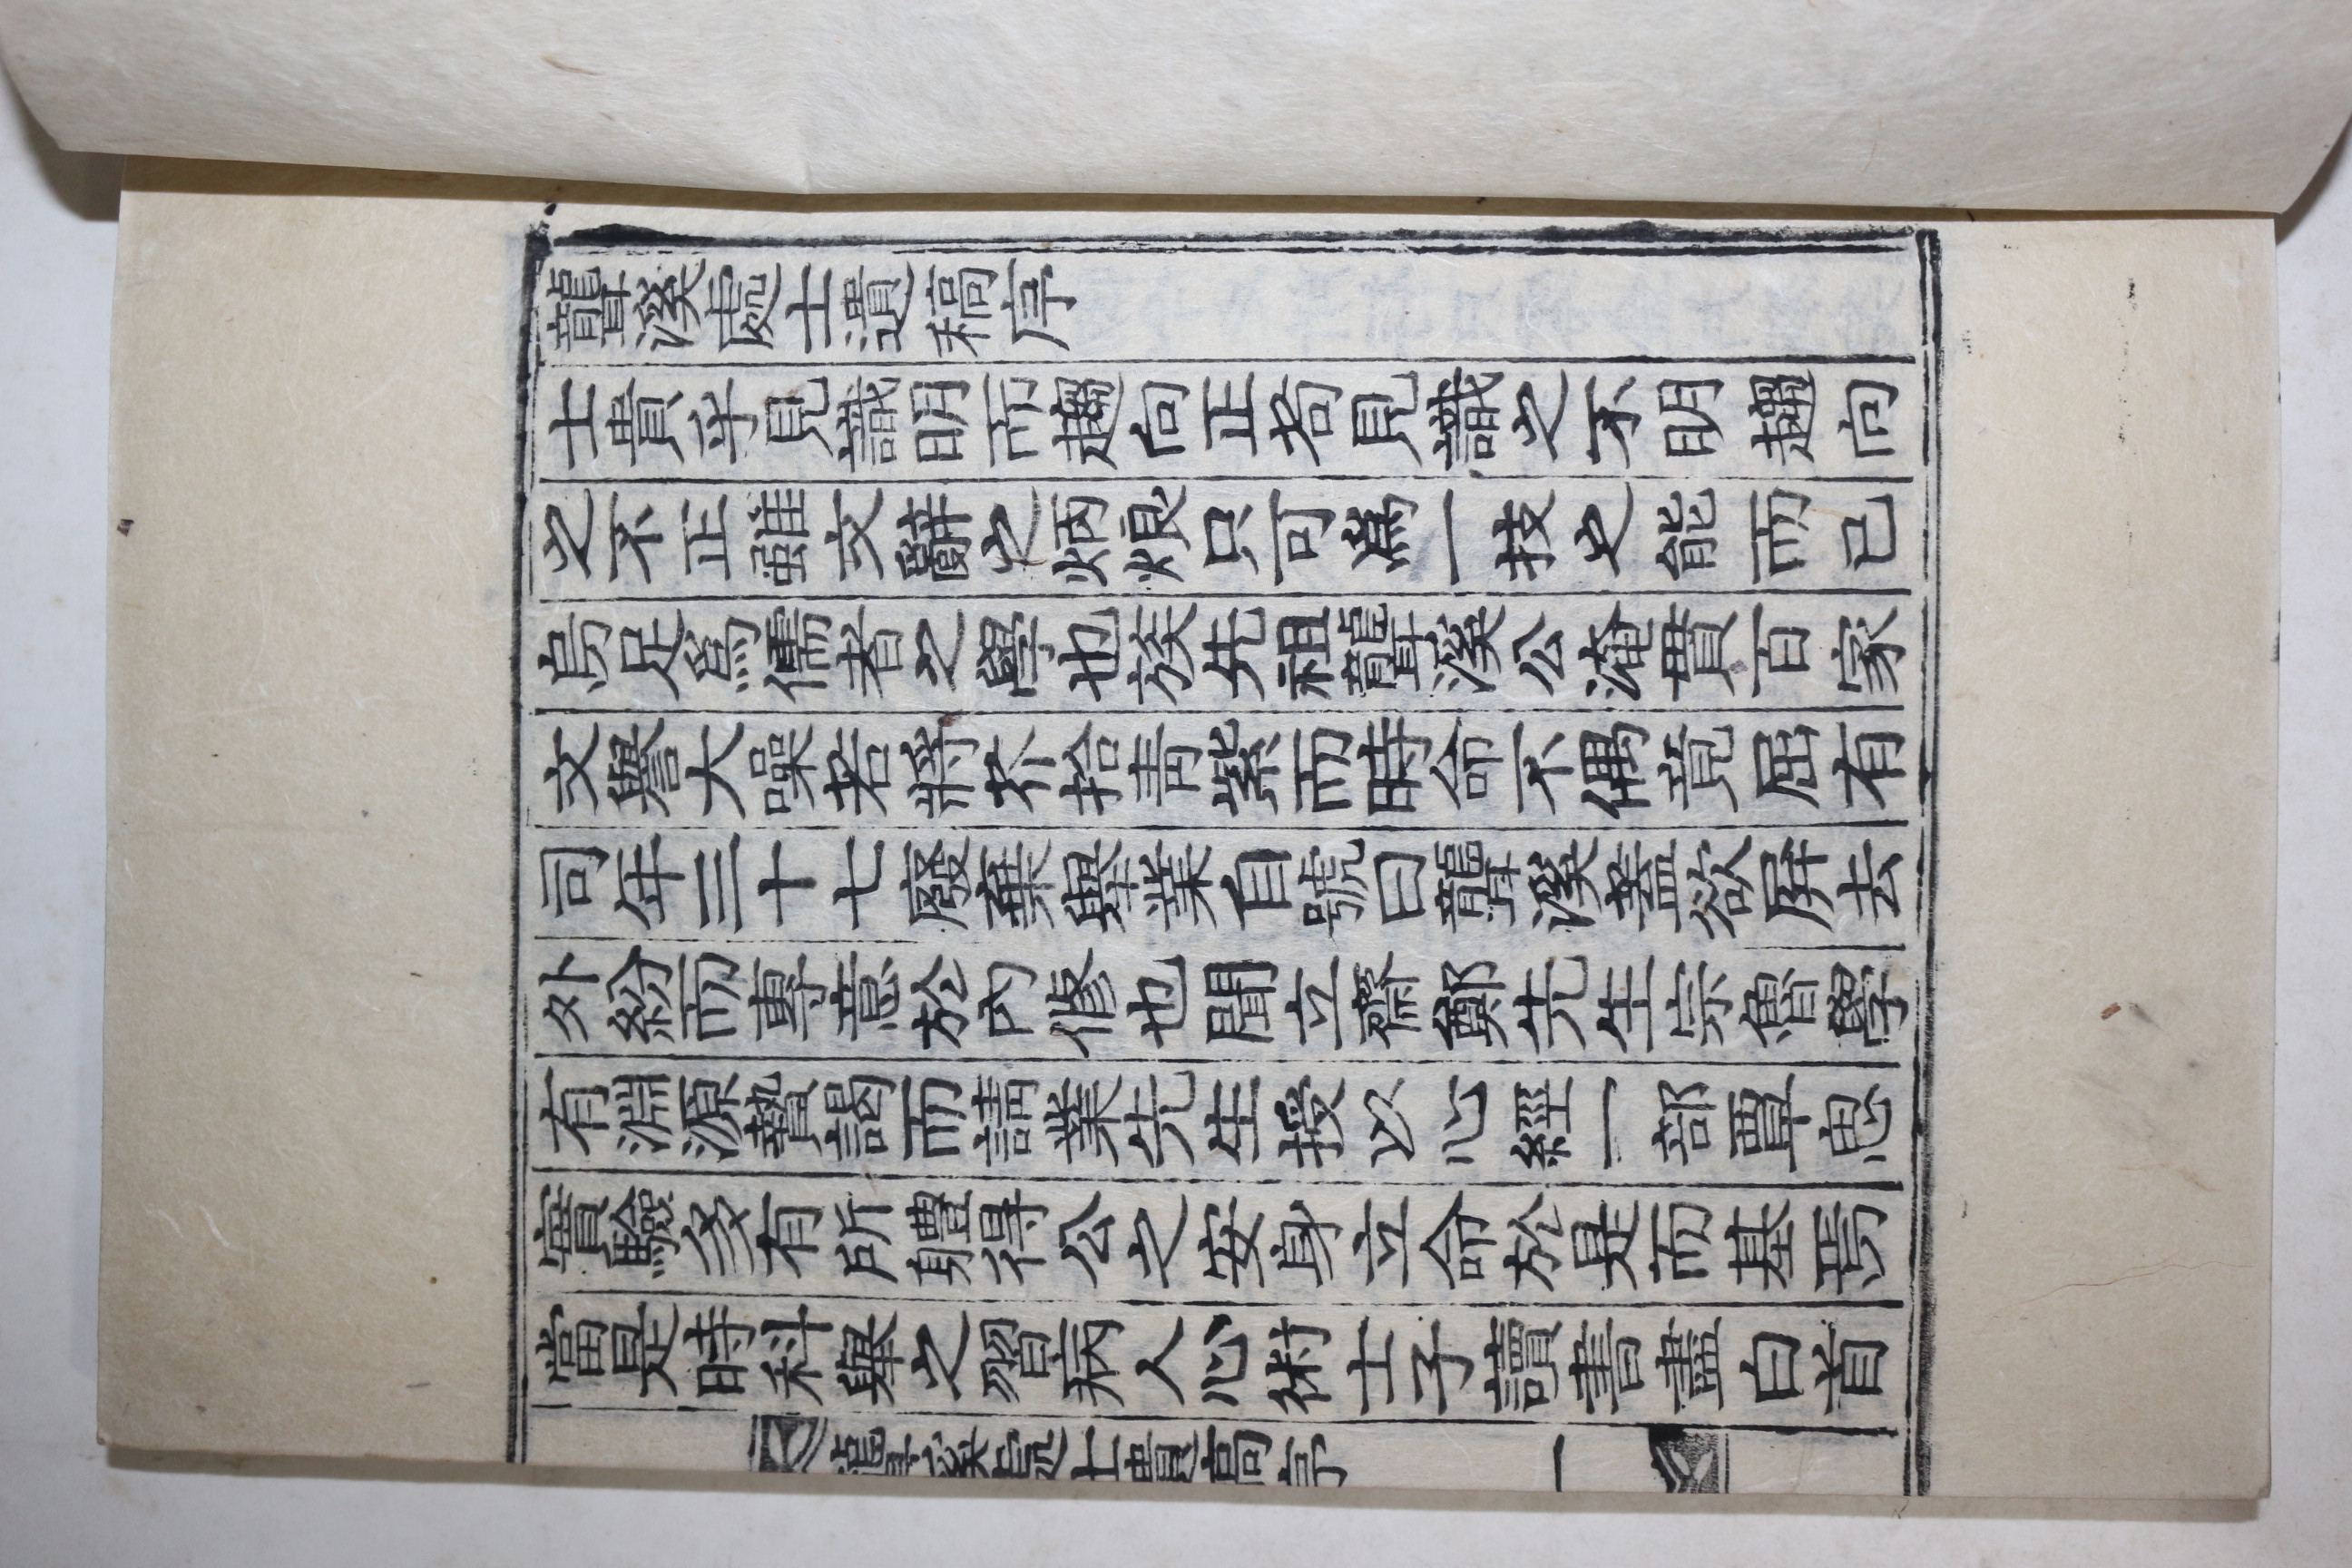 聾溪處士遺稿序
士貴乎見識明而趨向正苟見識之不明趨向
之不正雖文辭之炳烺只可爲一技之能而已
烏足爲儒者之學也族先祖聾溪公淹貫百家
文譽大噪若將芥拾靑紫而時命不偶竟屈有
司年三十七廢棄擧業自號曰聾溪蓋欲屛去
外紛而專意於內修也聞立齋鄭先生宗魯學
有淵源贄謁而請業先生授以心經一部覃思
實驗多有所軆得公之安身立命於是而基焉
當是時科擧之習病人心術士子讀書盡白首
聾溪處士遺稿序
一